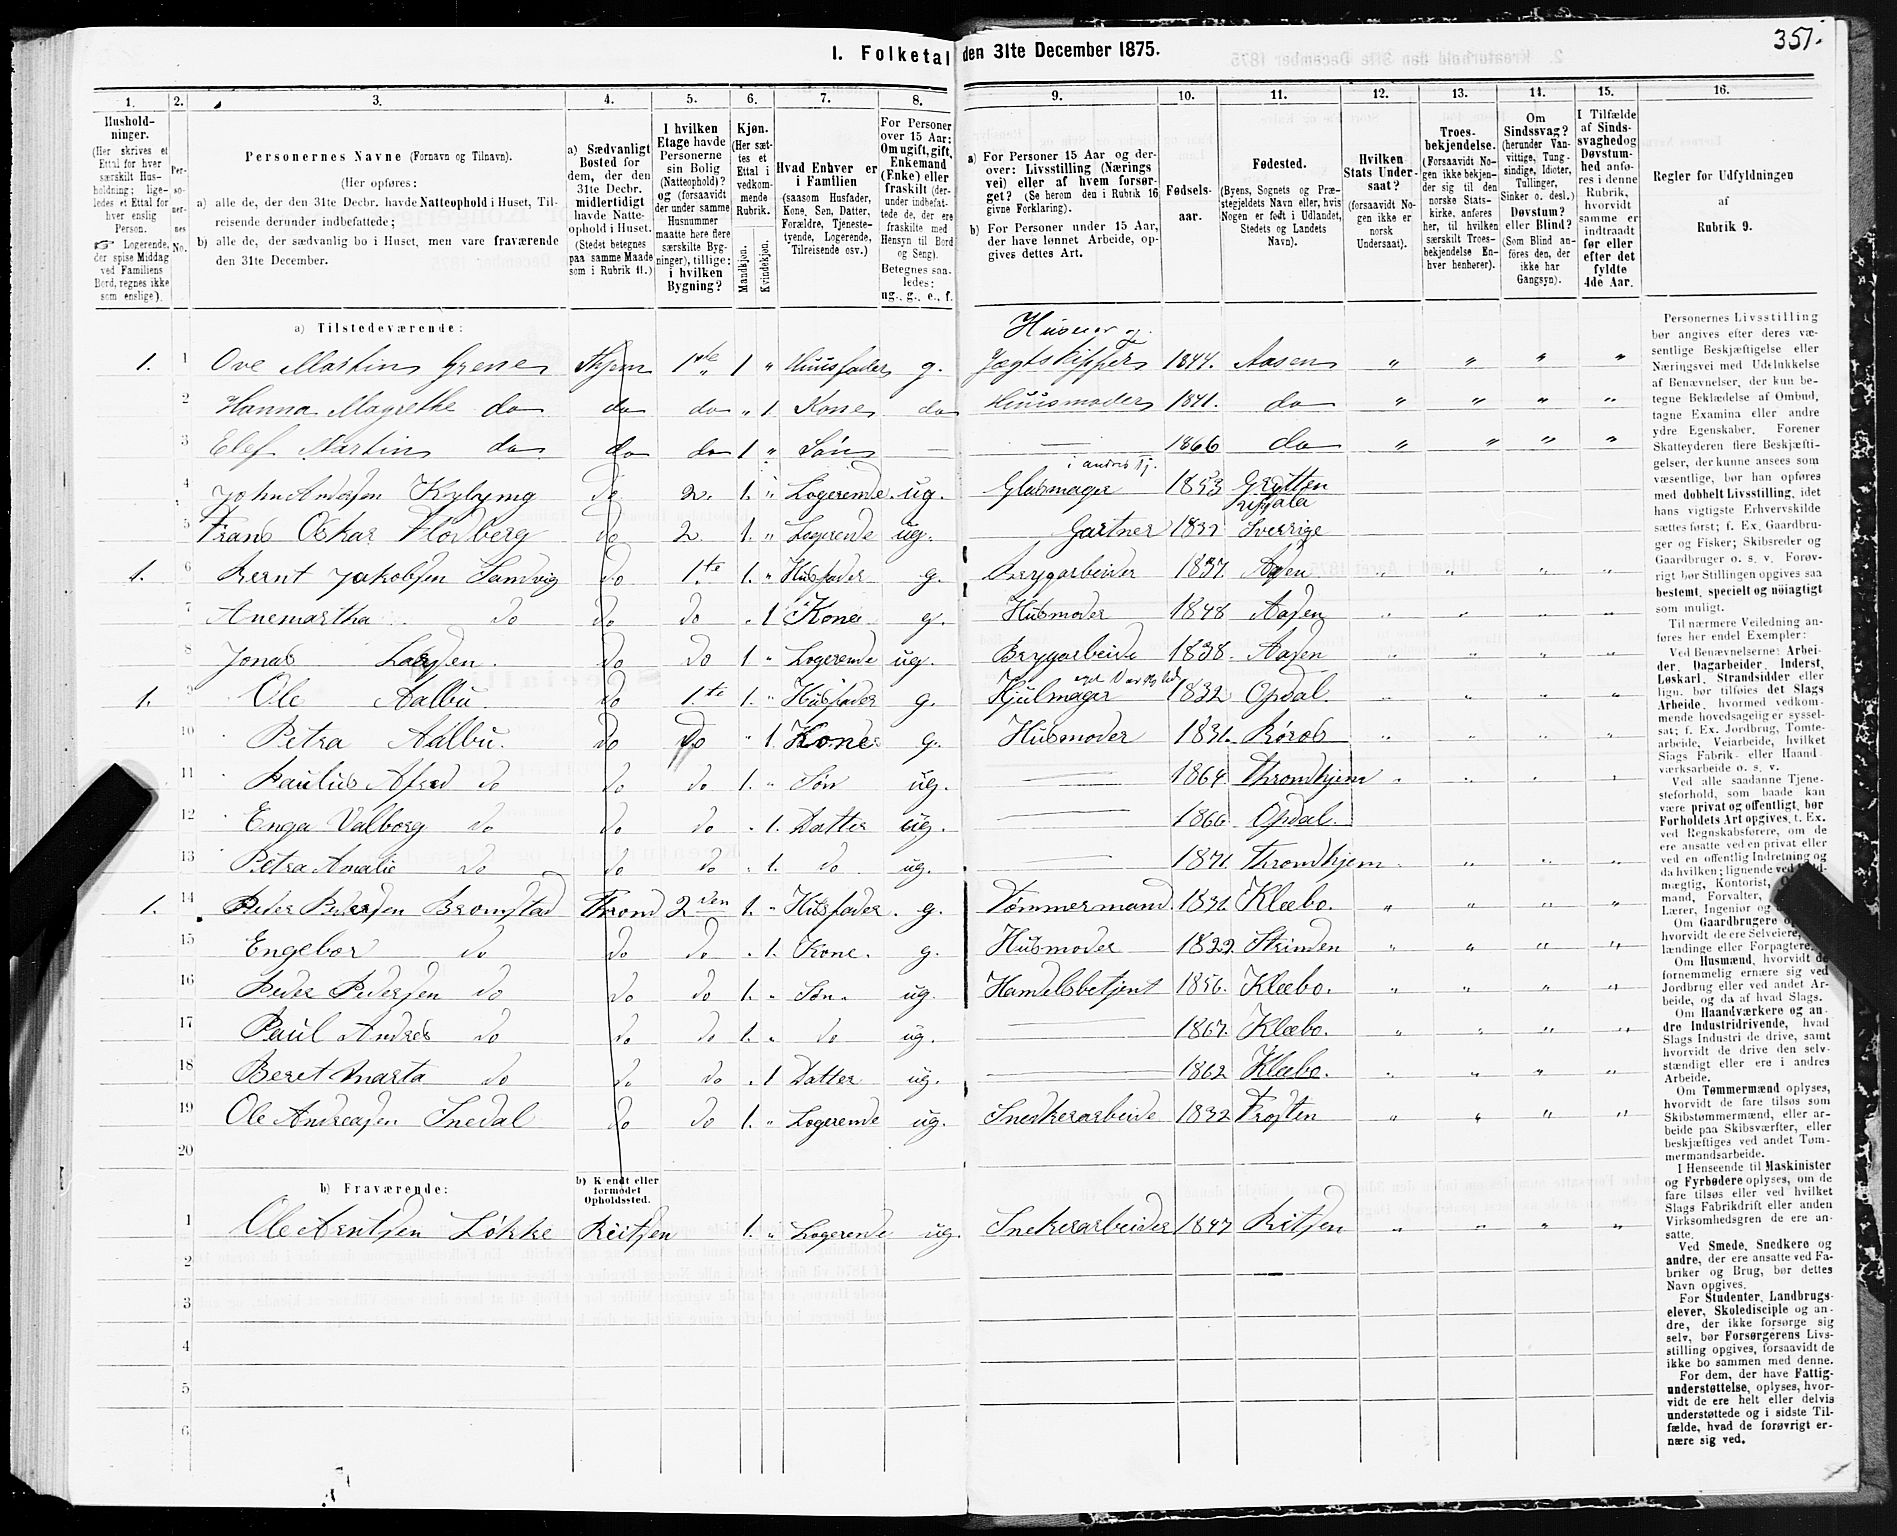 351.
I. Folketal den 31te December 1875.
1. 2. 3. 4. 5. 6. 7. 8. 9. 10. 11. 12. 13. 14. 15. 16.
Hushold-
ninger.
(Her skrives et
Ettal for hver
særskilt Hus-
holdning; lige-
ledes et Ettal for
hver enslig
Person.
☞ Logerende,
der spise Middag
ved Familiens
Bord, regnes ikke
som enslige).
Per-
so-
ner-
nes
No.
Personernes Navne (Fornavn og Tilnavn).
(Her opføres:
a) alle de, der den 31te Decbr. havde Natteophold i Huset, Til-
reisende derunder indbefattede;
b) alle de, der sædvanlig bo i Huset, men vare fraværende
den 31te December.
a) Sædvanligt
Bosted for
dem, der den
31te Decbr.
midlertidigt
havde Natte-
ophold i Huset.
(Stedet betegnes
paa samme Maade
som i Rubrik 11.)
I hvilken
Etage havde
Personerne
sin Bolig
(Natteophold)?
og (forsaavidt
der under samme
Husnummer
maatte høre flere
særskilte Byg-
ninger), tillige:
i hvilken
Bygning?
Kjøn.
(Her sæt-
tes et
Ettal i
vedkom-
mende
Rubrik.
Mandkjøn.
Kvindekjøn.
Hvad Enhver er
i Familien
(saasom Husfader,
Kone, Søn, Datter,
Forældre, Tjeneste-
tyende, Logerende,
Tilreisende osv.)
For Personer
over 15 Aar:
Om ugift, gift,
Enkemand
(Enke) eller
fraskilt (der-
under indbefat-
tede de, der ere
fraskilte med
Hensyn til Bord
og Seng).
Betegnes saa-
ledes:
ug., g., e., f.
a) For Personer 15 Aar og der-
over: Livsstilling (Nærings
vei) eller af hvem forsør-
get? (Se herom den i Rubrik 16
givne Forklaring).
b) For Personer under 15 Aar,
der have lønnet Arbeide, op-
gives dettes Art.
Fødsels-
aar.
Fødested.
(Byens, Sognets og Præ-
stegjeldets Navn eller, hvis
Nogen er født i Udlandet,
Stedets og Landets
Navn).
Hvilken
Stats Under-
saat?
(forsaavidt No-
gen ikke er
norsk
Undersaat).
Troes-
bekjendelse.
(Forsaavidt No-
gen ikke bekjen-
der sig til den
norske Stats-
kirke, anføres
her, til hvilken
særskilt Troes-
bekjendelse En-
hver henhører).
Om
Sindssvag?
(herunder Van-
vittige, Tung-
sindige, Idioter,
Tullinger,
Sinker o. desl.)
Døvstum?
eller Blind?
(Som Blind an-
føres den, der
ikke har
Gangsyn).
I Tilfælde
af Sinds-
svaghed og
Døvstum-
hed anfø-
res i denne
Rubrik,
hvorvidt
samme er
indtraadt
før eller
efter det
fyldte
4de Aar.
Regler for Udfyldningen
af
Rubrik 9.
a) Tilstedeværende:
Huseier og
1. 1 Ove Martin Grenne Thjem 1ste 1 " Huusfader g. Jægtskipper 1844. Aasen " " " "
2 Hanna Magrethe do do do " 1. Kone do Huusmoder 1841. do " " " "
3 Elef Martin do do do 1 " Søn — — 1866 do " " " "
i andres Tj.
4 John Andersen Kylyng do 2. 1. " Logerende ug. Glasmager 1853 Grytten
Upsala
5 Frans Oskar Flodberg do 2 1. " Logerende ug. Gartner 1837 Sverrige
1. 6 Bernt Jakobsen Sandvig do 1.te 1. " Husfader g. Brygarbeider 1837. Aasen " " " "
7 Anemartha do do do " 1 Kone g. Husmoder 1848 Aasen " " " "
8 Jonas Larsen do do 1 " Logerende ug. Brygarbeide 1838. Aasen " " " "
1. 9 Ole Aalbu do 1.te 1. " Husfader g. Hjulmager 1832 Opdal " " " "
10 Petra Aalbu. do do " 1. Kone g. Husmoder 1831. Røros " " " "
11 Paulus do do do 1. " Søn ug. — 1864 Throndhjem " " " "
12 Enga Valborg do do do " 1. Datter ug. — 1866 Opdal.
13 Petra Amalie do do do " 1. do ug. — 1871. Throndhjem " " " "
1. 14 Peder Pedersen Bromstad Thrond 2den 1. " Husfader g. Tømmermand. 1831 Klæbo. " " " "
15 Engebor do do do " 1. Kone. g. Husmoder 1822. Strinden " " " "
16 Peder Pedersen do do do 1. " Søn. ug. Handelsbetjent 1856. Klæbo. " " " "
17 Paul Andres do do do 1. " do ug. — 1867. Klæbo. " " " "
18 Beret Marta do do do " 1 Datter ug. — 1862 Klæbo. " " " "
19 Ole Andreasen Snedal do do 1. " Logerende ug. Snedkerarbeide 1832 Frosten " " " "
20
b) Fraværende:
b) Kjendt eller
formodet
Opholdssted.
1 Ole Arntsen Løkke Reitsen 1. " Logerende ug. Snekerarbeider 1847 Ritsen " " " "
2
3
4
5
6
Personernes Livsstilling
bør angives efter deres væ-
sentlige Beskjæftigelse eller
Næringsvei med Udelukkelse
af Benævnelser, der kun be-
tegne Beklædelse af Ombud,
tagne Examina eller andre
ydre Egenskaber. Forener
Skatteyderen flere Beskjæfti-
gelser, der kunne ansees som
væsentlige, bør han opføres
med dobbelt Livsstilling, idet
hans vigtigste Erhvervskilde
sættes først; f. Ex. Gaardbru-
ger og Fisker; Skibsreder og
Gaardbruger o. s. v. Forøv-
rigt bør Stillingen opgives saa
bestemt, specielt og nøiagtigt
som muligt.
Til nærmere Veiledning an-
føres her endel Exempler:
Ved Benævnelserne: Arbei-
der, Dagarbeider, Inderst,
Løskarl, Strandsidder eller
lign. bør tilføies det Slags
Arbeide, hvormed vedkom-
mende hovedsagelig er syssel-
sat; f. Ex. Jordbrug, Tomte-
arbeide, Veiarbeide, hvilket
Slags Fabrik- eller Haand
værksarbeide o. s. v.
Ved alle saadanne Tjene-
steforhold, som baade kan
være privat og offentligt, bør
Forholdets Art opgives, t. Ex.
ved Regnskabsførere, om de
ere ansatte ved en privat eller
ved en offentlig Indretning og
da hvilken; lignende ved
mægtig, Kontorist,
mand, Forvalter,
Lærer, Ingeniør og
Om Gaardbrugere
hvorvidt de ere Selveiere,
lændinge eller Forpagtere.
Om Husmænd, hvorvidt de
fornemmelig ernære sig ved
Jordbrug eller ved andet Ar-
beide, og da af hvad Slags.
Om Haandværkere og an-
dre Industridrivende, hvad
Slags Industri de drive, samt
hvorvidt de drive den selv-
stændigt eller ere i andres
Arbeide.
Om Tømmermænd oplyses,
hvorvidt de fare tilsøs som
Skibstømmermænd, eller ar-
beide paa Skibsværfter, eller
beskjæftiges ved andet Tøm-
mermandsarbeide.
I Henseende til Maskinister
og Fyrbødere oplyses, om de
fare tilsøs eller ved hvilket
Slags Fabrikdrift eller anden
Virksomhedsgren de ere an-
satte.
Ved Smede, Snedkere og
andre, der ere ansatte ved Fa-
briker og Brug, bør dettes
Navn opgives.
For Studenter, Landbrugs-
elever, Skoledisciple og an-
dre, der ikke forsørge sig
selv, bør Forsørgerens Livs-
stilling opgives, forsaavidt de
ikke bo sammen med denne.
For dem, der have Fattig-
understøttelse, oplyses, hvor-
vidt de ere helt eller delvis
understøttede og i sidste Til-
fælde, hvad de forøvrigt er-
nære sig ved.